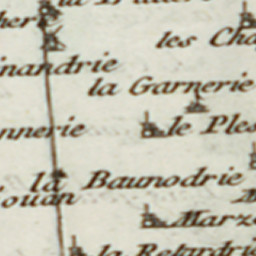 les Cha
nandrie
la Garnerie
nnerie
le Ples
la Baunodrie
ouan
Marz
la Retardrie